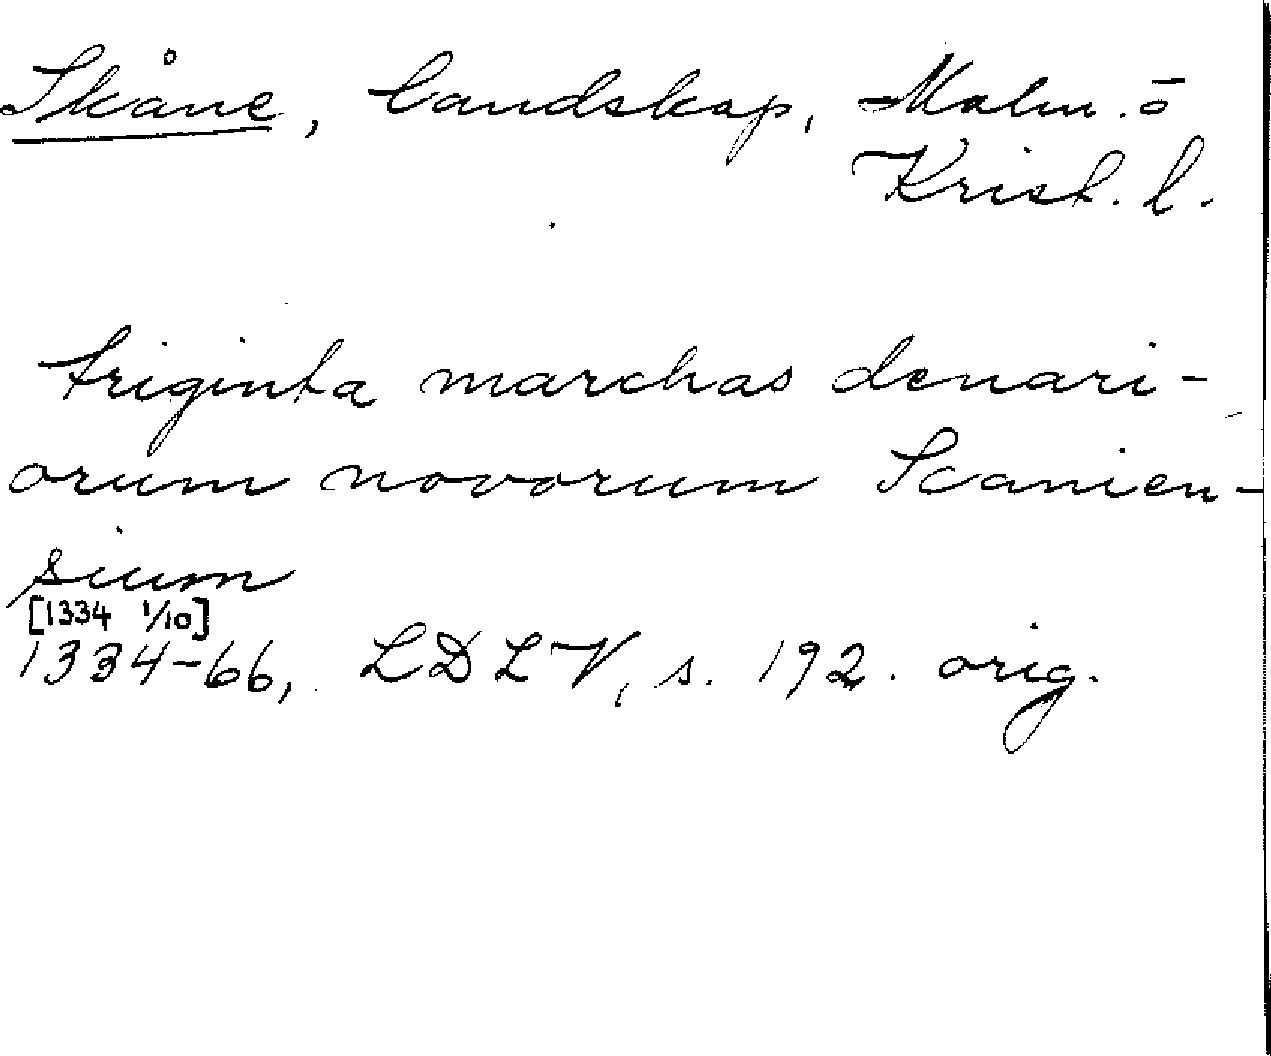 Skåne, landskap, Malm. ō
Krist. l.
triginta marchas denari-
orum novorum Scanien-
sium
[1334 1/10]
1334-66, LDLV, s. 192. orig.